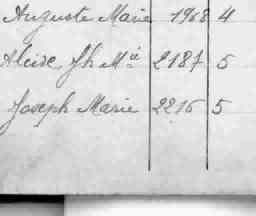 Auguste Marie 1968 4
Alcide Jh Mie 2187 5
Joseph Marie 2216 5